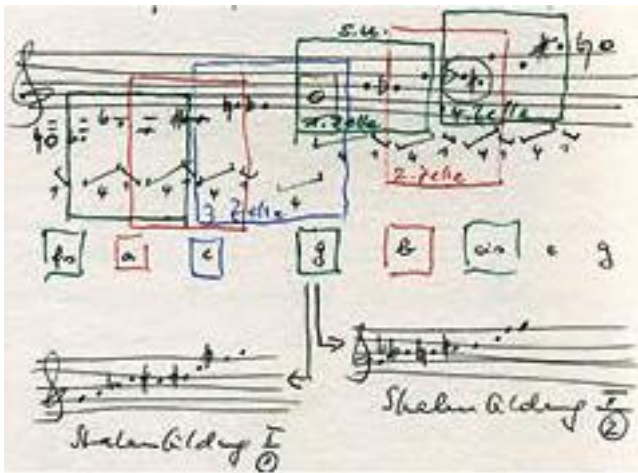 s.u.
1. Zelle 4. Zelle
1 4 1 4 1 4 1 4 4 1 4 1 4 1
3. Zelle 2. Zelle
fis a c g b cis e g
Skalenbildung II
②
Skalenbildung I
①